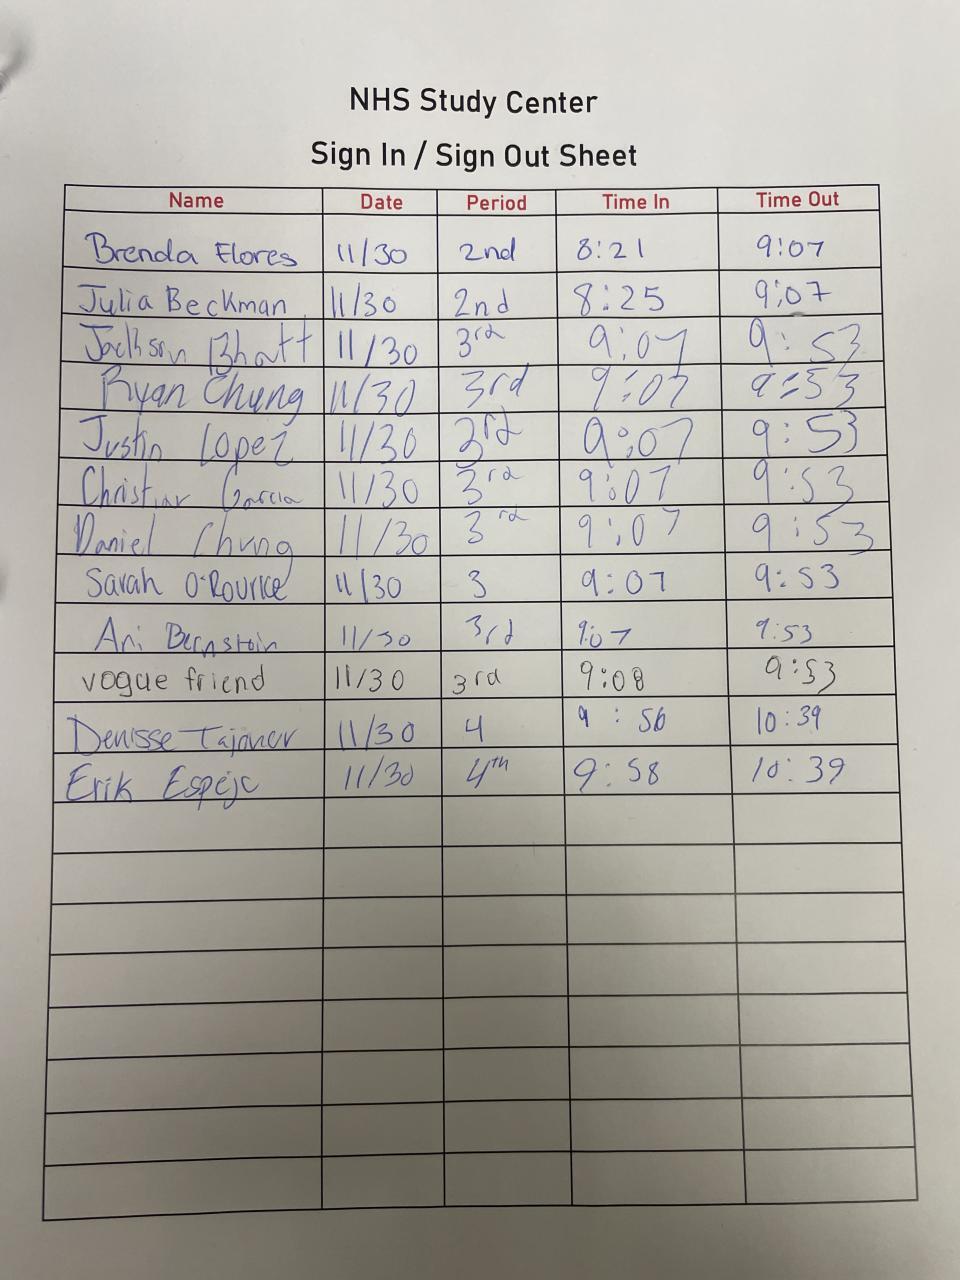 NHS Study Center
Sign In / Sign Out Sheet
Name Date Period Time In Time Out
Brenda Flores 11/30 2nd 8:21 9:07
Julia Beckman 11/30 2nd 8:25 9:07
Jackson Bhatt 11/30 3rd 9:07 9:53
Ryan Chung 11/30 3rd 9:07 9:53
Justin Lopez 11/30 3rd 9:07 9:53
Christian Garcia 11/30 3rd 9:07 9:53
Daniel Chung 11/30 3rd 9:07 9:53
Sarah O'Rourke 11/30 3 9:07 9:53
Ari Bernstein 11/30 3rd 9:07 9:53
vogue friend 11/30 3rd 9:08 9:53
Denisse 11/30 4 9:56 10:39
Erik Espejo 11/30 4th 9:58 10:39